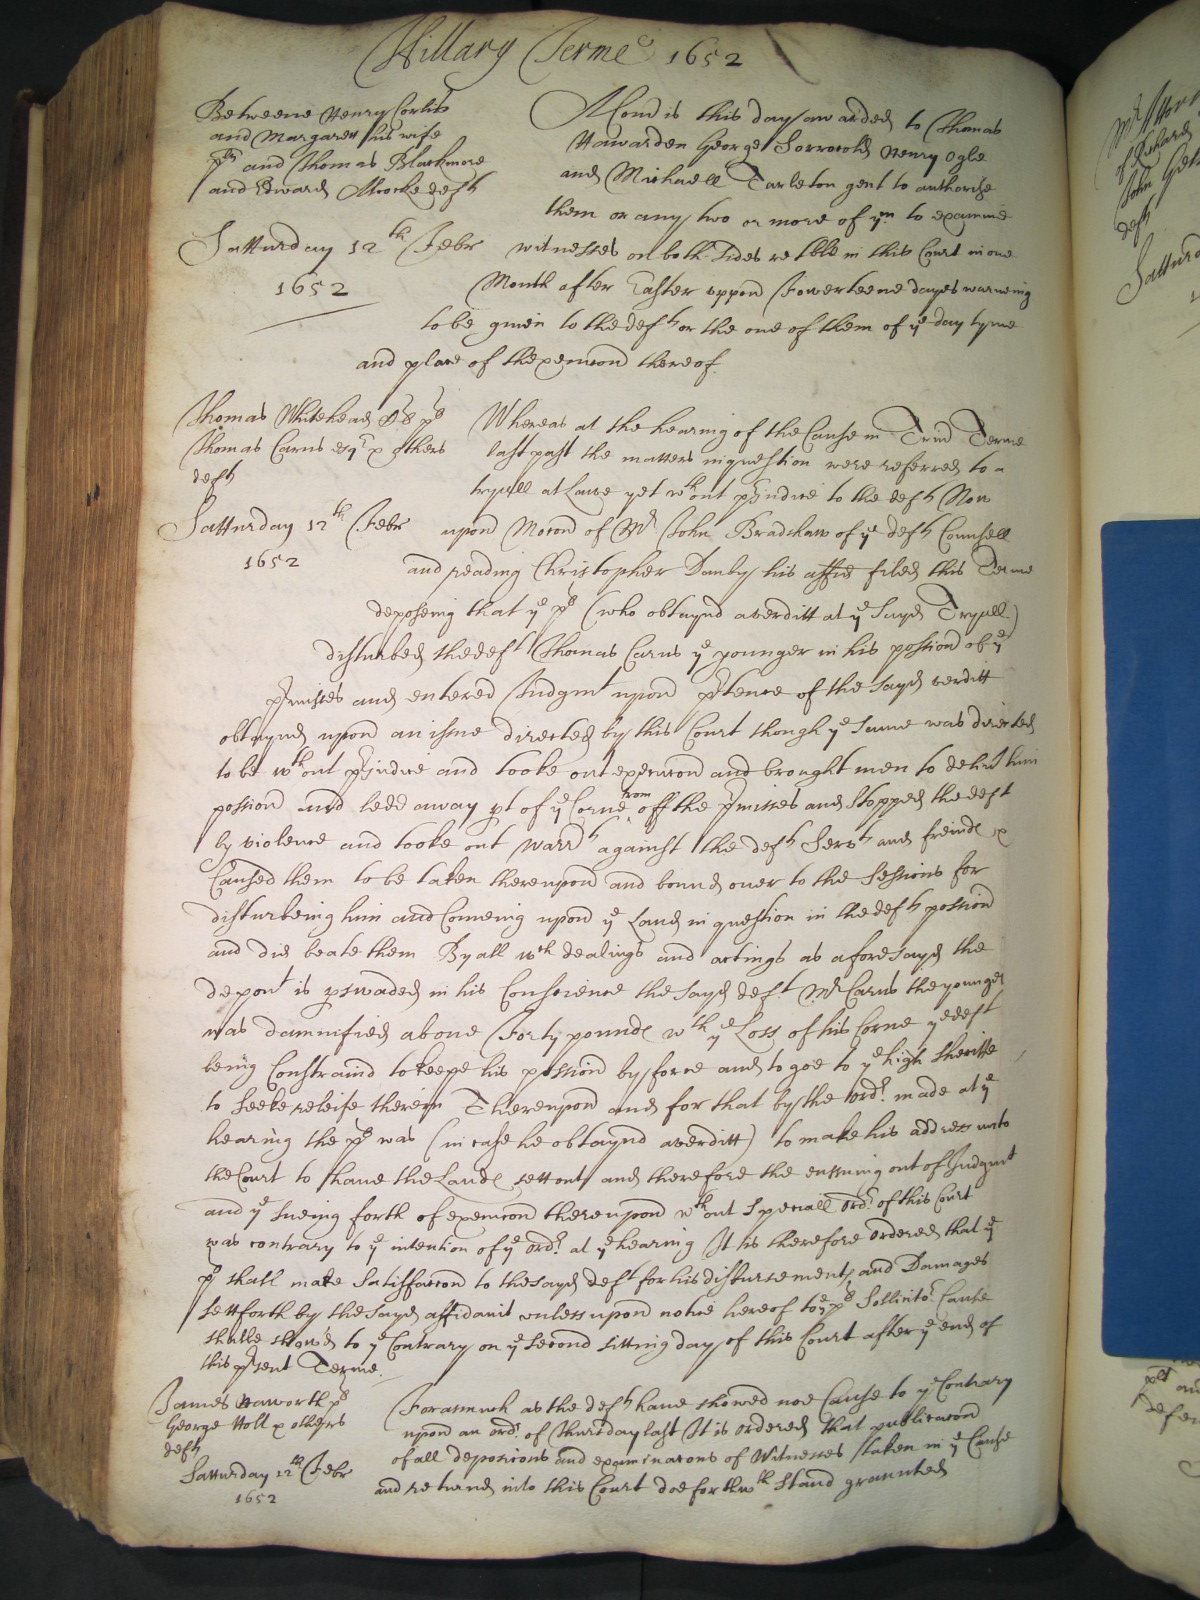 Hillary Terme 1652
Betweene Henry Corles
and Margarett his wife
plts and Thomas Blackmore
and Edward Moorke defts
Satturday 12th Febr
1652
A Comon is this day awarded to Thomas
Hawarden George Sorrocold Henry Ogle
and Michaell Tarleton gent to authorize
them or any two or more of ym to examine
witnesses on both sides retble in this Court in one
Month after Easter uppon Fowerteene dayes warneing
to be given to the defts or the one of them of ye day tyme
and place of thexecucon thereof.
Thomas Whitehead Esqr plt
Thomas Carus esqr & others
defts
Satturday 12th Febr
1652
Whereas at the hearing of the Cause in Trini Terme
last past the matters in question were referred to a
tryall at Lawe yet wthout prjudice to the defts Now
upon Mocon of Mr John Bradshaw of ye defts Counsell
and reading Christopher Danby his affid filed this Terme
deposeing that ye plt (who obtaynd a verditt at ye sayd Tryall)
disturbed the deft Thomas Carus ye younger in his possion of ye
prmisses and entered Judgmt upon prtence of the sayd verditt
obtayned upon an issue directed by this Court though ye same was directed
to be wthout prjudice and tooke out execucon and brought men to delivr him
possion and ledd away pt of ye Corne from off the prmisses and stopped the deft
by violence and tooke out warrts against the defts Servts and freinds &
Caused them to be taken thereupon and bound over to the Sessions for
disturbeing him and Comeing upon ye Land in question in the defts possion
and did beate them By all wch dealings and actings as aforesayd the
depont is pswaded in his Conscience the sayd deft Mr Carus the younger
was damnified above Forty pounds wth ye Loss of his Corne ye deft
being Constraind to keepe his possion by force and to goe to ye high Sheriffe
to seeke releife therein Thereupon and for that by the ordr made at ye
hearing the plt was (in case he obtaynd a verditt) to make his address unto
the Court to have the Lands sett out and therefore the entring out of Judgmt
and ye sueing forth of execucon thereupon wthout speciall ordr of this Court
was contrary to ye intention of ye ordr at ye hearing It is therefore ordered that ye
plt shall make Satisfaccon to the sayd deft for his disbursements and Damages
sett forth by the sayd affidavit unless upon notice hereof to ye plts Sollicitor Cause
shalbe shewed to ye Contrary on ye second sitting day of this Court after ye end of
this prsent Terme.
James Haworth plt
George Holt & others
defts
Satturday 12th Febr
1652
Forasmuch as the defts have showed noe Cause to ye Contrary
upon an ordr of Thursday last It is ordered that publicacon
of all deposicons and examinacons of Witnesses taken in ye Cause
and returned into this Court doe forthwth stand graunted